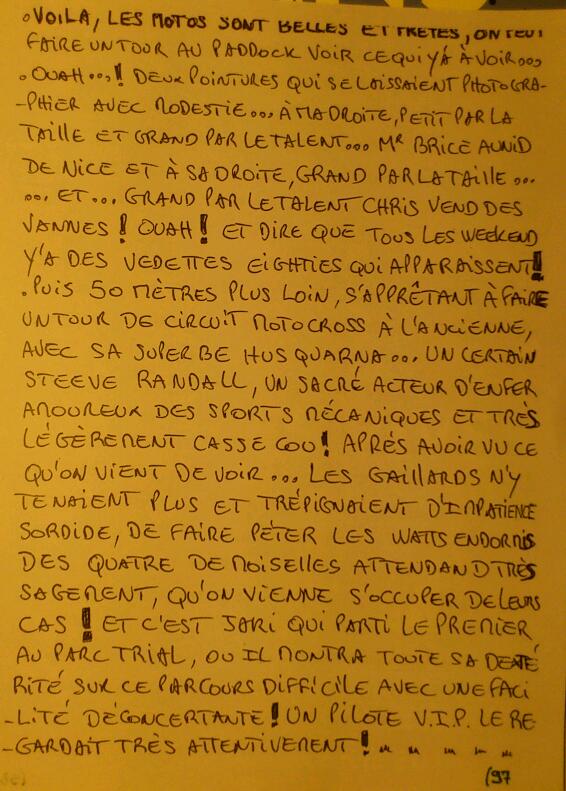 .VOILÀ, LES MOTOS SONT BELLES ET PRÊTES, ON PEUT
FAIRE UN TOUR AU PADDOCK VOIR CE QUI Y'À À VOIR...
.OUAH...! DEUX POINTURES QUI SE LAISSAIENT PHOTOGRA-
-PHIER AVEC MODESTIE... À MA DROITE, PETIT PAR LA
TAILLE ET GRAND PAR LE TALENT... MR BRICE AUNID
DE NICE ET À SA DROITE, GRAND PAR LA TAILLE...
... ET... GRAND PAR LE TALENT CHRIS VEND DES
VANNES! OUAH! ET DIRE QUE TOUS LES WEEKEND
Y'A DES VEDETTES EIGHTIES QUI APPARAISSENT!
.PUIS 50 MÈTRES PLUS LOIN, S'APPRÊTANT À FAIRE
UN TOUR DE CIRCUIT MOTOCROSS À L'ANCIENNE,
AVEC SA SUPERBE HUSQUARNA... UN CERTAIN
STEEVE RANDALL, UN SACRÉ ACTEUR D'ENFER
AMOUREUX DES SPORTS MÉCANIQUES ET TRÈS
LÉGÈREMENT CASSE COU! APRÉS AVOIR VU CE
QU'ON VIENT DE VOIR... LES GAILLARDS N'Y
TENAIENT PLUS ET TRÉPIGNAIENT D'IMPATIENCE
SORDIDE, DE FAIRE PÉTER LES WATTS ENDORMIS
DES QUATRE DEMOISELLES ATTENDAND TRÈS
SAGEMENT, QU'ON VIENNE S'OCCUPER DE LEURS
CAS! ET C'EST JARI QUI PARTI LE PREMIER
AU PARC TRIAL, OU IL MONTRA TOUTE SA DEXTÉ
RITÉ SUR CE PARCOURS DIFFICILE AVEC UNE FACI
-LITÉ DÉCONCERTANTE! UN PILOTE V.I.P. LE RE
-GARDAIT TRÈS ATTENTIVEMENT!
(97